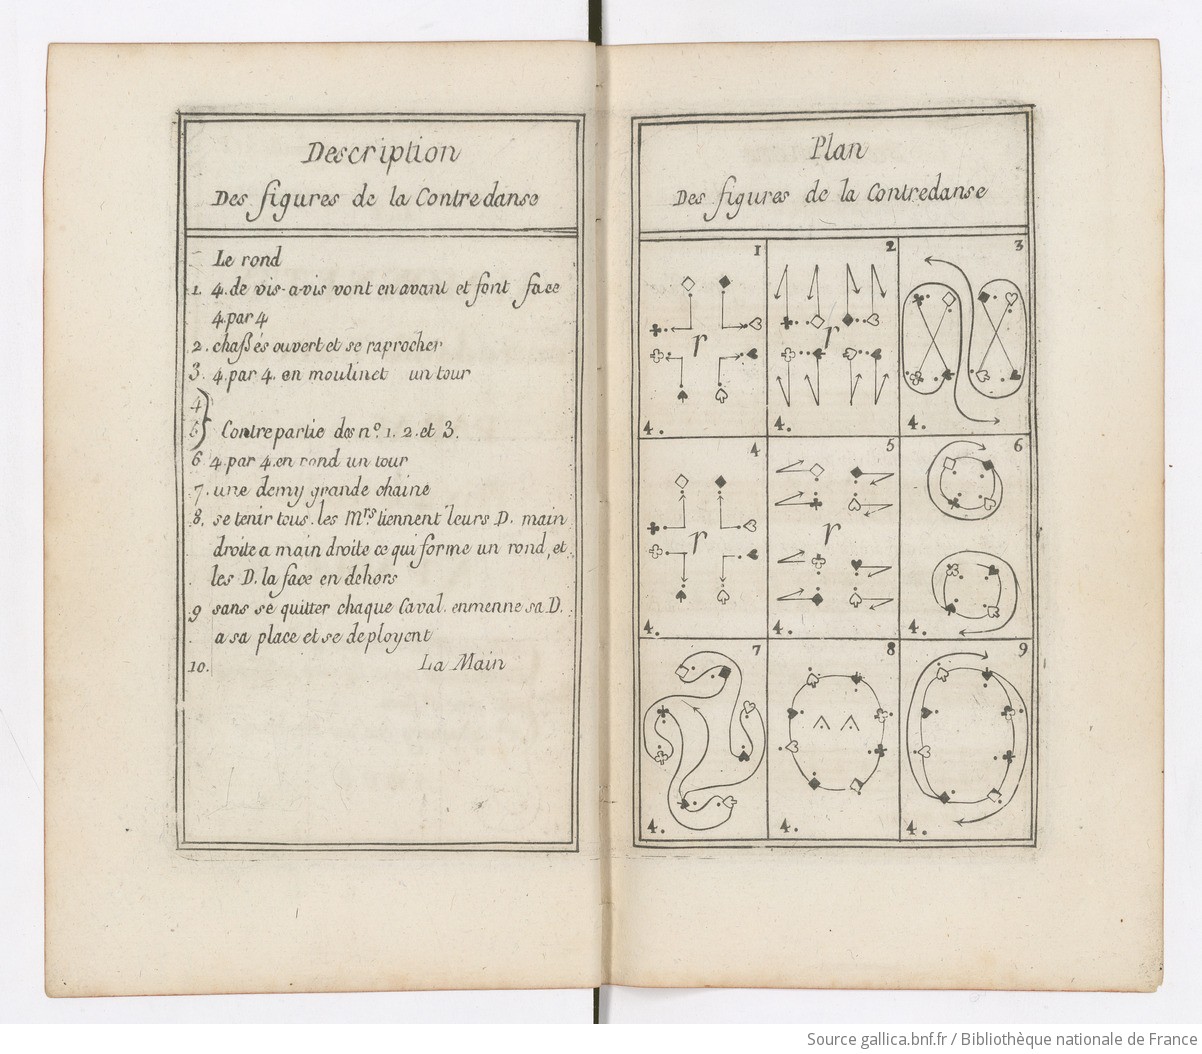 Description
Des figures de la Contredanse
Le rond
1. 4. de vis-a-vis vont en avant et font face
4. par 4
2. chaßés ouvert et se raprocher
3. 4. par 4. en moulinet un tour
4
5 } Contrepartie des nº. 1. 2. et 3.
6 4. par 4. en rond un tour
7. une demy grande chaine
8. se tenir tous. les Mrs tiennent leurs D. main
droite a main droite ce qui forme un rond, et
les D. la face en dehors
9 sans se quitter chaque Caval. enmenne sa D.
a sa place et se deployent
10. La Main
Plan
Des figures de la Contredanse
1 2 3
r r
4. 4. 4.
4 5 6
r r
4. 4. 4.
7 8 9
4. 4. 4.
Source gallica.bnf.fr / Bibliothèque nationale de France